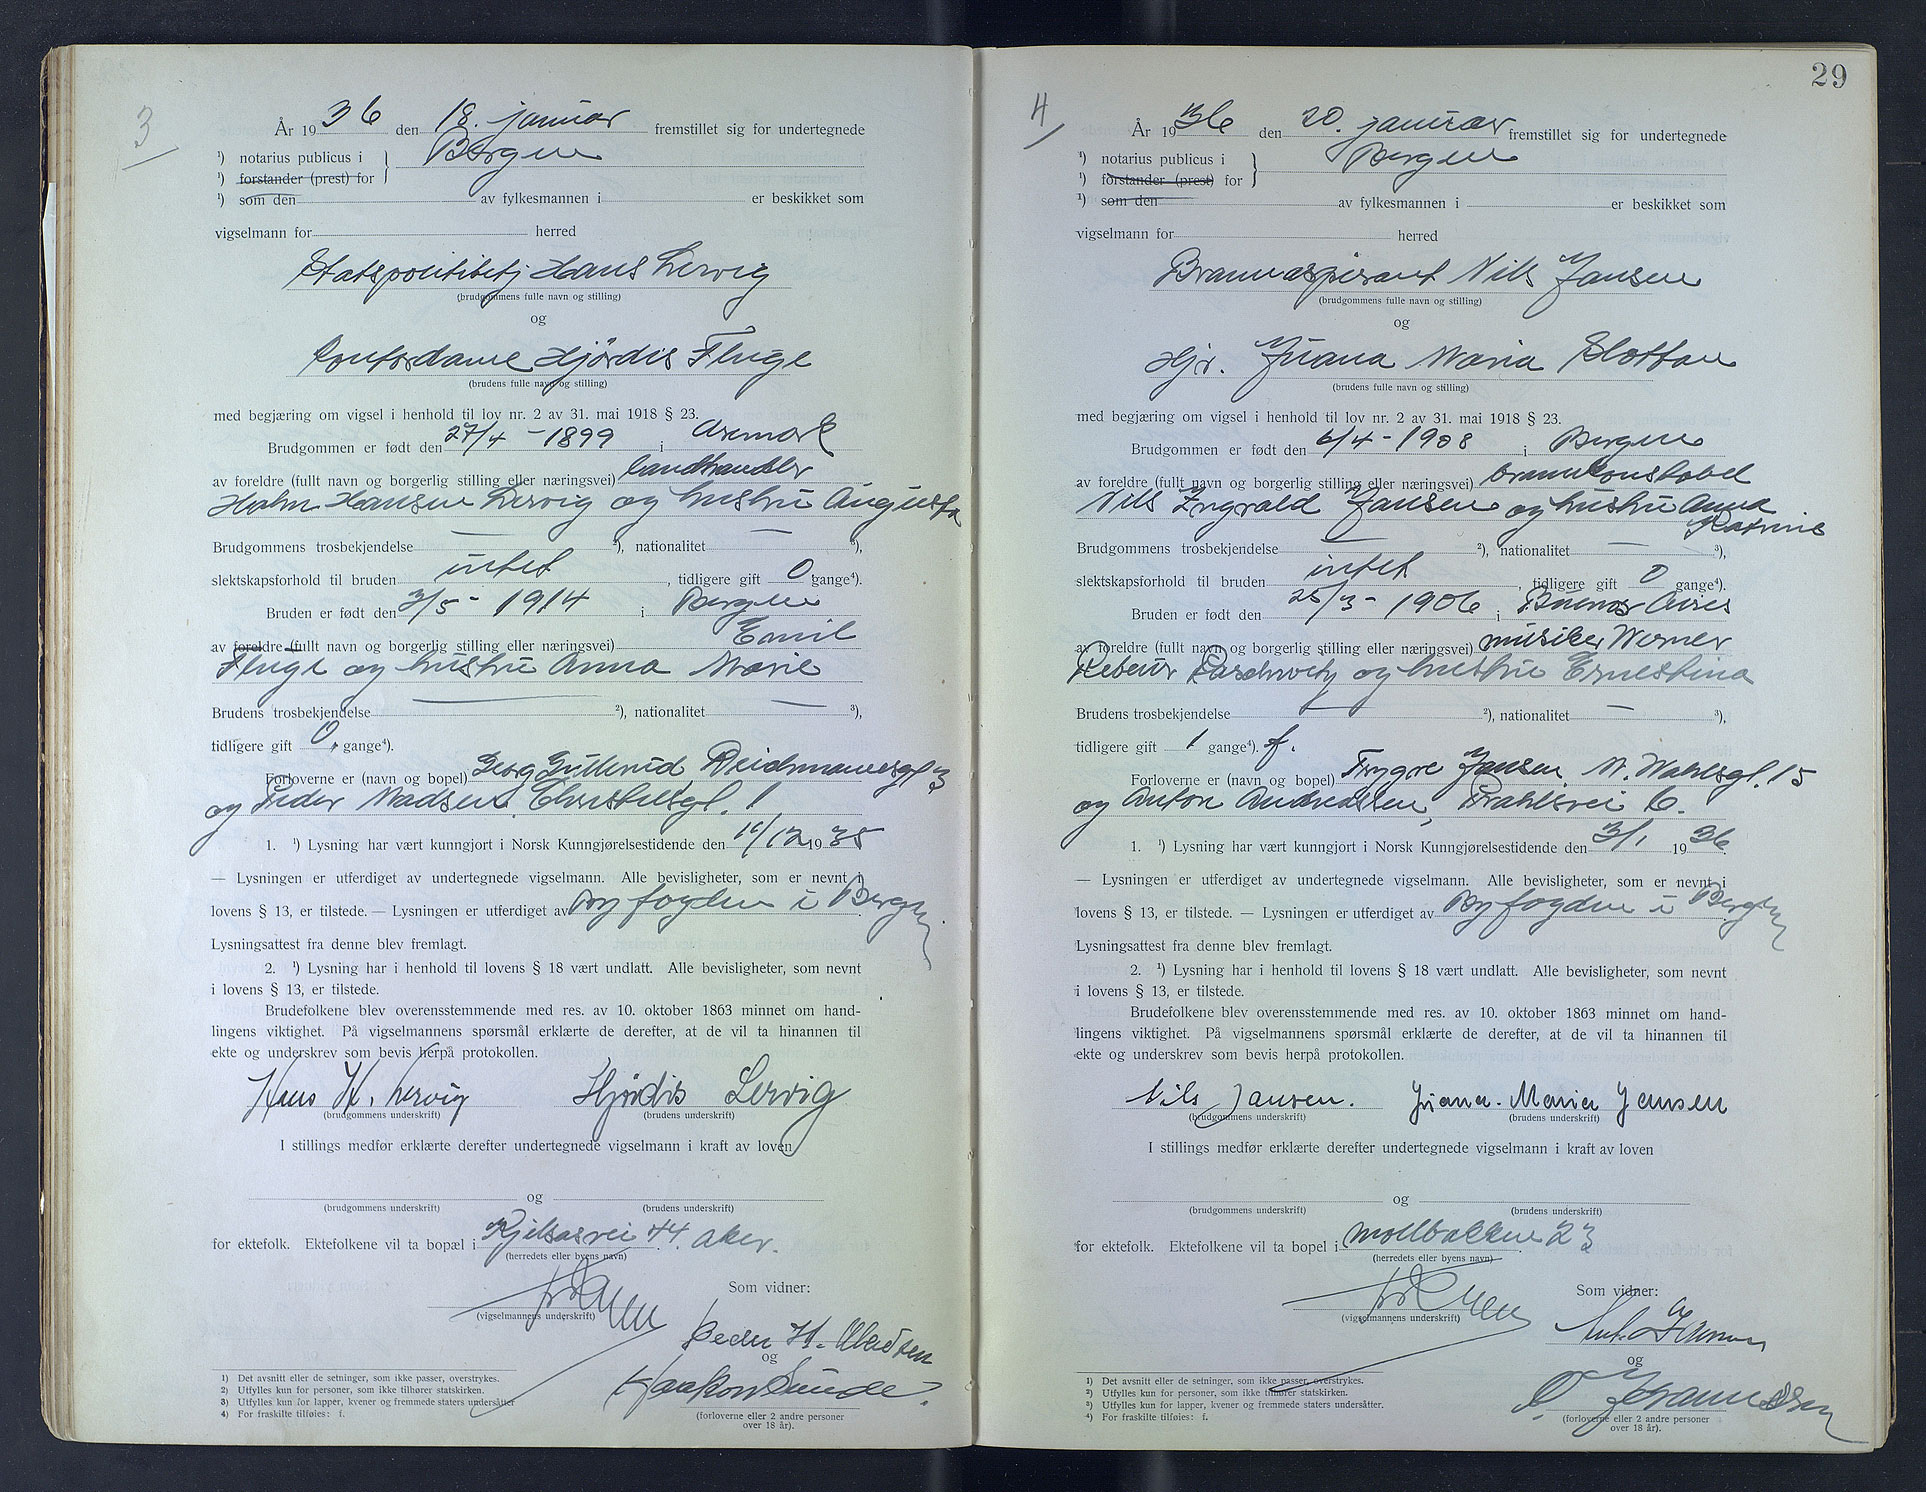 3
År 1936 den 18. januar fremstillet sig for undertegnede
¹) notarius publicus i } Bergen
¹) forstander (prest) for
¹) som den av fylkesmannen i er beskikket som
vigselmann for herred
Statspolitibetj Hans Lervig
(brudgommens fulle navn og stilling)
og
Kontordame Hjördis Fluge
(brudens fulle navn og stilling)
med begjæring om vigsel i henhold til lov nr. 2 av 31. mai 1918 § 23.
Brudgommen er født den 27/4 - 1899 i Aremark
av foreldre (fullt navn og borgerlig stilling eller næringsvei) landhandler
Hansen Lervig og hustru Augusta
Brudgommens trosbekjendelse — ²), nationalitet — ³),
slektskapsforhold til bruden intet, tidligere gift 0 gange⁴).
Bruden er født den 3/5 - 1914 i Bergen
av foreldre (fullt navn og borgerlig stilling eller næringsvei) Emil
Fluge og hustru Anna Marie
Brudens trosbekjendelse — ²), nationalitet — ³),
tidligere gift 0 gange⁴).
Forloverne er (navn og bopel) Georg Gullerud, Deichmannsgt 3
og Peder Madsen, Christiesgt. 1
1. ¹) Lysning har vært kunngjort i Norsk Kunngjørelsestidende den /12 1935
— Lysningen er utferdiget av undertegnede vigselmann. Alle bevisligheter, som er nevnt i
lovens § 13, er tilstede. — Lysningen er utferdiget av Byfogden i Bergen
Lysningsattest fra denne blev fremlagt.
2. ¹) Lysning har i henhold til lovens § 18 vært undlatt. Alle bevisligheter, som nevnt
i lovens § 13, er tilstede.
Brudefolkene blev overensstemmende med res. av 10. oktober 1863 minnet om hand-
lingens viktighet. På vigselmannens spørsmål erklærte de derefter, at de vil ta hinannen til
ekte og underskrev som bevis herpå protokollen.
Hans H. Lervig Hjördis Lervig
(brudgommens underskrift) (brudens underskrift)
I stillings medfør erklærte derefter undertegnede vigselmann i kraft av loven
og
(brudgommens underskrift) (brudens underskrift)
for ektefolk. Ektefolkene vil ta bopæl i Kjelsåsvei 44. Aker.
(herredets eller byens navn)
Som vidner:
(vigselmannens underskrift)
Peder H. Madsen
og
Haakon Sunde
(forloverne eller 2 andre personer
over 18 år).
1) Det avsnitt eller de setninger, som ikke passer, overstrykes.
2) Utfylles kun for personer, som ikke tilhører statskirken.
3) Utfylles kun for lapper, kvener og fremmede staters undersåtter
4) For fraskilte tilføies: f.
29
4
År 1936 den 20. januar fremstillet sig for undertegnede
¹) notarius publicus i } Bergen
¹) forstander (prest) for
¹) som den av fylkesmannen i er beskikket som
vigselmann for herred
Brannaspirant Nils Jansen
(brudgommens fulle navn og stilling)
og
Hjr. Juana Maria Slottau
(brudens fulle navn og stilling)
med begjæring om vigsel i henhold til lov nr. 2 av 31. mai 1918 § 23.
Brudgommen er født den 6/4 - 1908 i Bergen
av foreldre (fullt navn og borgerlig stilling eller næringsvei) brannkonstabel
Nils Ingvald Jansen og hustru Anna
Katrine
Brudgommens trosbekjendelse — ²), nationalitet — ³),
slektskapsforhold til bruden intet, tidligere gift 0 gange⁴).
Bruden er født den 25/3 - 1906 i Buenos Aires
av foreldre (fullt navn og borgerlig stilling eller næringsvei) musiker Werner
Rebeur Paschwitz og hustru Ernestina
Brudens trosbekjendelse — ²), nationalitet — ³),
tidligere gift 1 gange⁴). f.
Forloverne er (navn og bopel) Trygve Jansen, M. Wahlsgt. 15
og Anton Andreassen, Prahlsvei 6.
1. ¹) Lysning har vært kunngjort i Norsk Kunngjørelsestidende den 3/1 1936
— Lysningen er utferdiget av undertegnede vigselmann. Alle bevisligheter, som er nevnt i
lovens § 13, er tilstede. — Lysningen er utferdiget av Byfogden i Bergen
Lysningsattest fra denne blev fremlagt.
2. ¹) Lysning har i henhold til lovens § 18 vært undlatt. Alle bevisligheter, som nevnt
i lovens § 13, er tilstede.
Brudefolkene blev overensstemmende med res. av 10. oktober 1863 minnet om hand-
lingens viktighet. På vigselmannens spørsmål erklærte de derefter, at de vil ta hinannen til
ekte og underskrev som bevis herpå protokollen.
Nils Jansen. Juana. Maria Jansen
(brudgommens underskrift) (brudens underskrift)
I stillings medfør erklærte derefter undertegnede vigselmann i kraft av loven
og
(brudgommens underskrift) (brudens underskrift)
for ektefolk. Ektefolkene vil ta bopel i Mollbakken 23
(herredets eller byens navn)
Som vidner:
(vigselmannens underskrift)
og
(forloverne eller 2 andre personer
over 18 år).
1) Det avsnitt eller de setninger, som ikke passer, overstrykes.
2) Utfylles kun for personer, som ikke tilhører statskirken.
3) Utfylles kun for lapper, kvener og fremmede staters undersåtter.
4) For fraskilte tilføies: f.